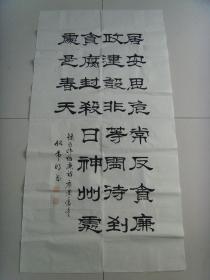 居安思危常反貪廉
政建設非等閑待到
貪腐封殺日神州處
處是春天